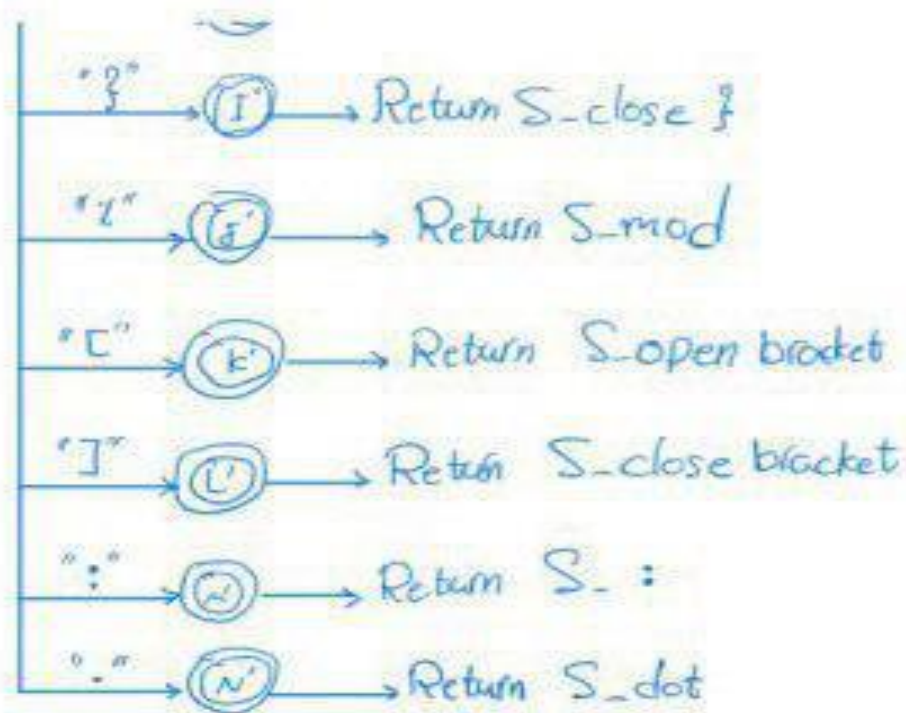 "}" I' Return S_close }
"%" J' Return S_mod
"[" K' Return S_open bracket
"]" L' Return S_close bracket
":" Return S_ :
"." N' Return S_dot